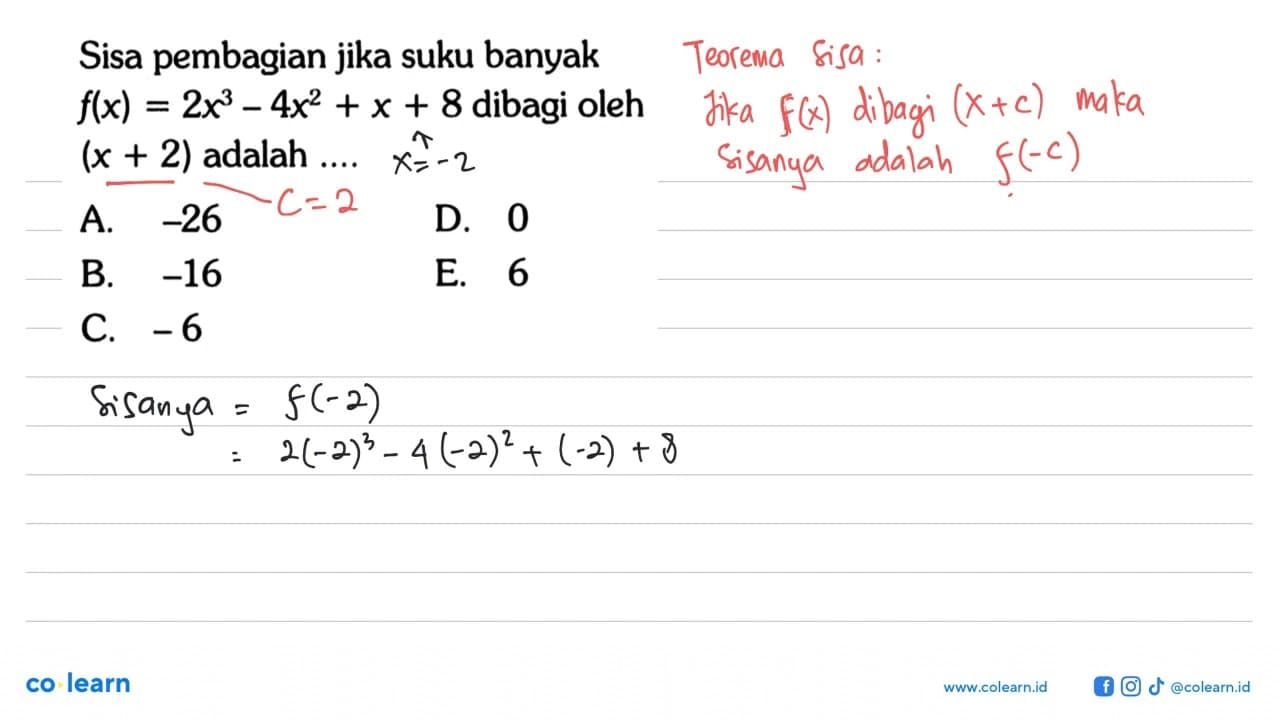 Sisa pembagian jika suku banyak
f(x) = 2x³ – 4x² + x + 8 dibagi oleh
(x + 2) adalah ....
x = -2
C = 2
A. –26
B. –16
C. – 6
D. 0
E. 6
Teorema Sisa :
Jika f(x) dibagi (x+c) maka
Sisanya adalah f(-c)
Sisanya = f(-2)
= 2(-2)³ - 4(-2)² + (-2) + 8
co learn
www.colearn.id
@colearn.id